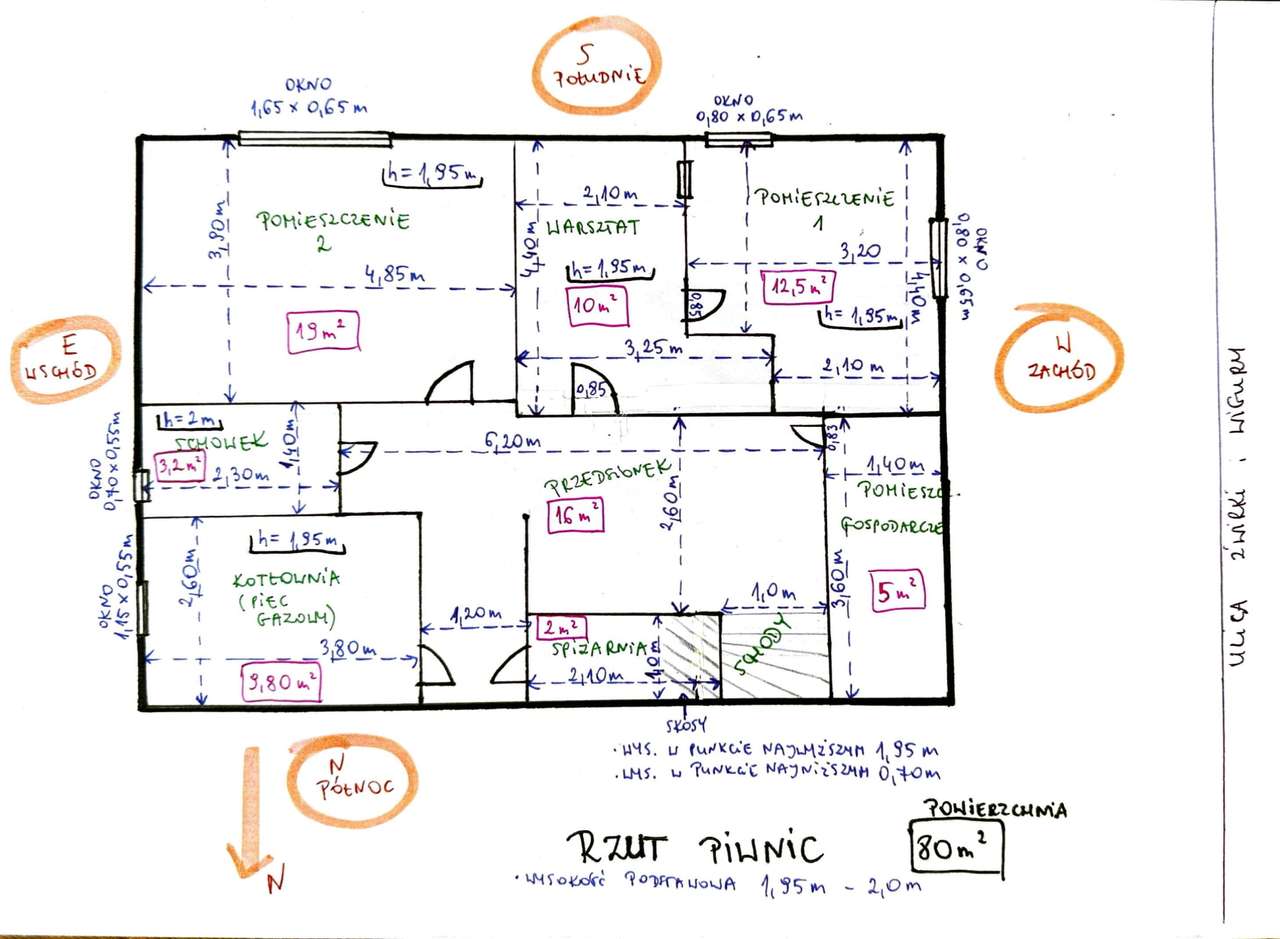 S
POŁUDNIE
OKNO
1,65 x 0,65 m
OKNO
0,80 x 0,65 m
h = 1,95 m
3,90 m
POMIESZCZENIE
2
4,85 m
19 m²
2,10 m
WARSZTAT
4,40 m
h = 1,95 m
10 m²
3,25 m
0,85
POMIESZCZENIE
1
3,20
12,5 m²
h = 1,95 m
4,40 m
0,85
2,10 m
OKNO
0,80 x 0,65 m
E
WSCHÓD
W
ZACHÓD
h = 2 m
SCHOWEK
3,2 m²
2,30 m
1,40 m
OKNO
0,70 x 0,55 m
6,20 m
PRZEDSIONEK
16 m²
2,60 m
0,83
1,40 m
POMIESZCZ.
GOSPODARCZE
3,60 m
5 m²
h = 1,95 m
KOTŁOWNIA
(PIEC
GAZOWY)
2,60 m
3,80 m
9,80 m²
OKNO
1,15 x 0,55 m
1,20 m
2 m²
SPIŻARNIA
2,10 m
1,40 m
1,0 m
SCHODY
SKOSY
• WYS. W PUNKCIE NAJWYŻSZYM 1,95 m
• WYS. W PUNKCIE NAJNIŻSZYM 0,70 m
N
PÓŁNOC
N
RZUT PIWNIC
• WYSOKOŚĆ PODSTAWOWA 1,95 m - 2,0 m
POWIERZCHNIA
80 m²
ULICA ŻWIRKI i WIGURY